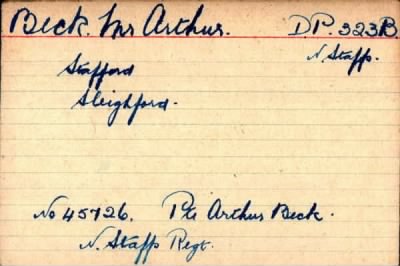 Beck. Mr Arthur. DP. 323B
N. Staffs.
Stafford
Sleighford.
No 45726. Pte Arthur Beck.
N. Staffs Regt.